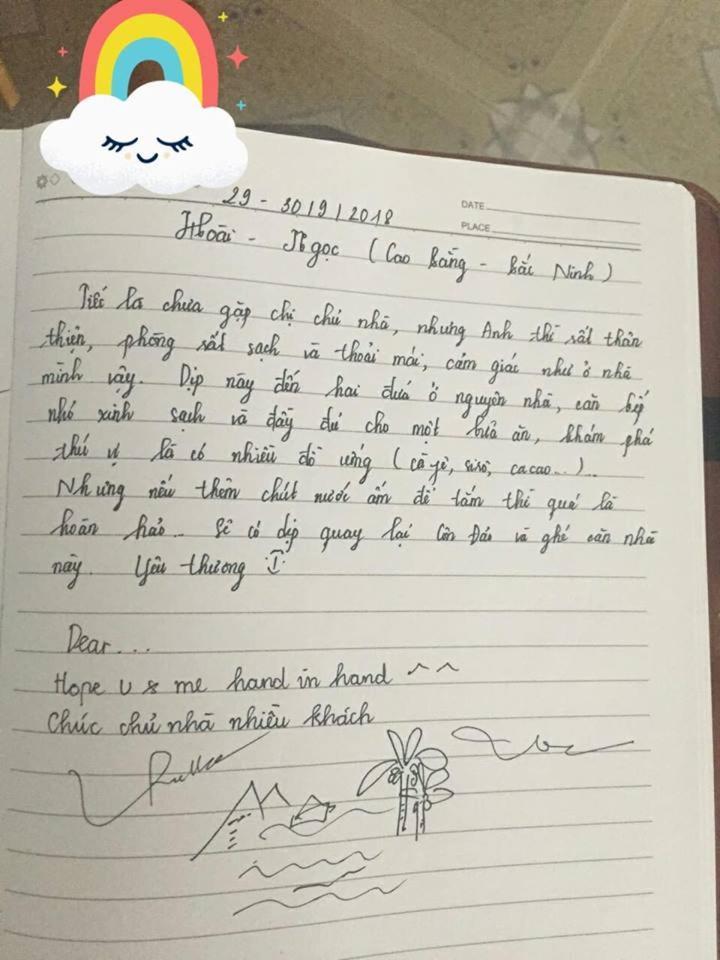 DATE
29 - 30/9/2018
PLACE
Hoài - Ngọc (Cao Bằng - Bắc Ninh)
Tiếc là chưa gặp chị chủ nhà, nhưng Anh thì rất thân
thiện, phòng rất sạch và thoải mái, cảm giác như ở nhà
mình vậy. Dịp này đến hai đứa ở nguyên nhà, căn bếp
nhỏ xinh sạch và đầy đủ cho một bữa ăn, khám phá
thú vị là có nhiều đồ uống (cà fê, ca cao...)...
Nhưng nếu thêm chút nước ấm để tắm thì quả là
hoàn hảo... Sẽ có dịp quay lại Côn Đảo và ghé căn nhà
này. Yêu thương
Dear...
Hope U & me hand in hand ^^
Chúc chủ nhà nhiều khách